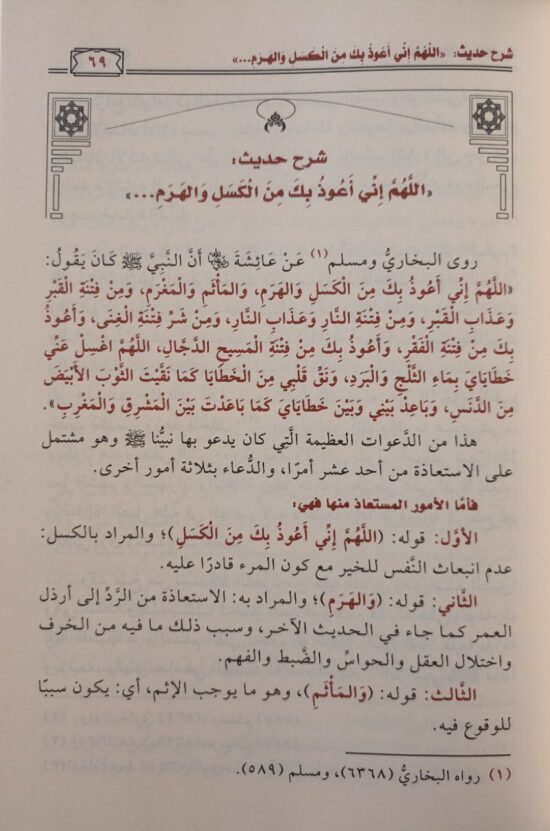 شرح حديث: «اللَّهُمَّ إِنِّي أَعُوذُ بِكَ مِنَ الْكَسَلِ وَالهَرَمِ...»
٦٩
شرح حديث:
«اللَّهُمَّ إِنِّي أَعُوذُ بِكَ مِنَ الْكَسَلِ وَالهَرَمِ...»
روى البخاريُّ ومسلم(١) عَنْ عَائِشَةَ ﵂ أَنَّ النَّبِيَّ ﷺ كَانَ يَقُولُ:
«اللَّهُمَّ إِنِّي أَعُوذُ بِكَ مِنَ الْكَسَلِ وَالهَرَمِ، وَالمَأْثَمِ وَالْمَغْرَمِ، وَمِنْ فِتْنَةِ الْقَبْرِ
وَعَذَابِ الْقَبْرِ، وَمِنْ فِتْنَةِ النَّارِ وَعَذَابِ النَّارِ، وَمِنْ شَرِّ فِتْنَةِ الْغِنَى، وَأَعُوذُ
بِكَ مِنْ فِتْنَةِ الْفَقْرِ، وَأَعُوذُ بِكَ مِنْ فِتْنَةِ الْمَسِيحِ الدَّجَّالِ، اللَّهُمَّ اغْسِلْ عَنِّي
خَطَايَايَ بِمَاءِ الثَّلْجِ وَالْبَرَدِ، وَنَقِّ قَلْبِي مِنَ الْخَطَايَا كَمَا نَقَّيْتَ الثَّوْبَ الأَبْيَضَ
مِنَ الدَّنَسِ، وَبَاعِدْ بَيْنِي وَبَيْنَ خَطَايَايَ كَمَا بَاعَدْتَ بَيْنَ الْمَشْرِقِ وَالْمَغْرِبِ».
هذا من الدَّعوات العظيمة الَّتِي كان يدعو بها نبيُّنا ﷺ وهو مشتمل
على الاستعاذة من أحد عشر أمرًا، والدُّعاء بثلاثة أمور أخرى.
فأمَّا الأمور المستعاذ منها فهي:
الأوَّل: قوله: (اللَّهُمَّ إِنِّي أَعُوذُ بِكَ مِنَ الْكَسَلِ)؛ والمراد بالكسل:
عدم انبعاث النَّفس للخير مع كون المرء قادرًا عليه.
الثَّاني: قوله: (وَالهَرَمِ)؛ والمراد به: الاستعاذة من الرَّدِّ إلى أرذل
العمر كما جاء في الحديث الآخر، وسبب ذلك ما فيه من الخرف
واختلال العقل والحواسِّ والضَّبط والفهم.
الثَّالث: قوله: (وَالمَأْثَمِ)، وهو ما يوجب الإثم، أي: يكون سببًا
للوقوع فيه.
(١) رواه البخاريُّ (٦٣٦٨)، ومسلم (٥٨٩).